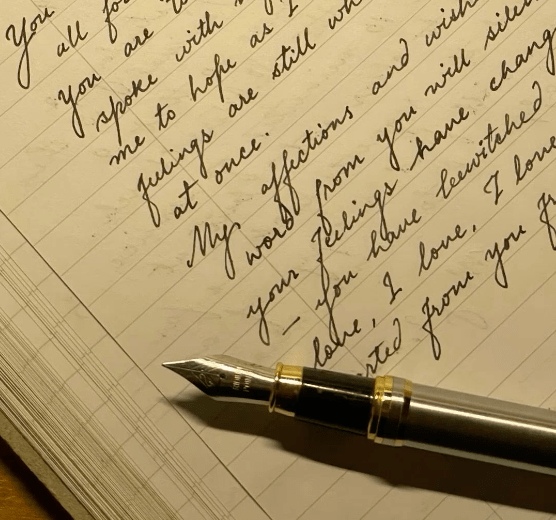 You
all
You are
spoke with
me to hope as I
feelings are still
at once.
My affections and wish
word from you will silen
your feelings have chang
– You have bewitched
love, I love, I love
rted from you